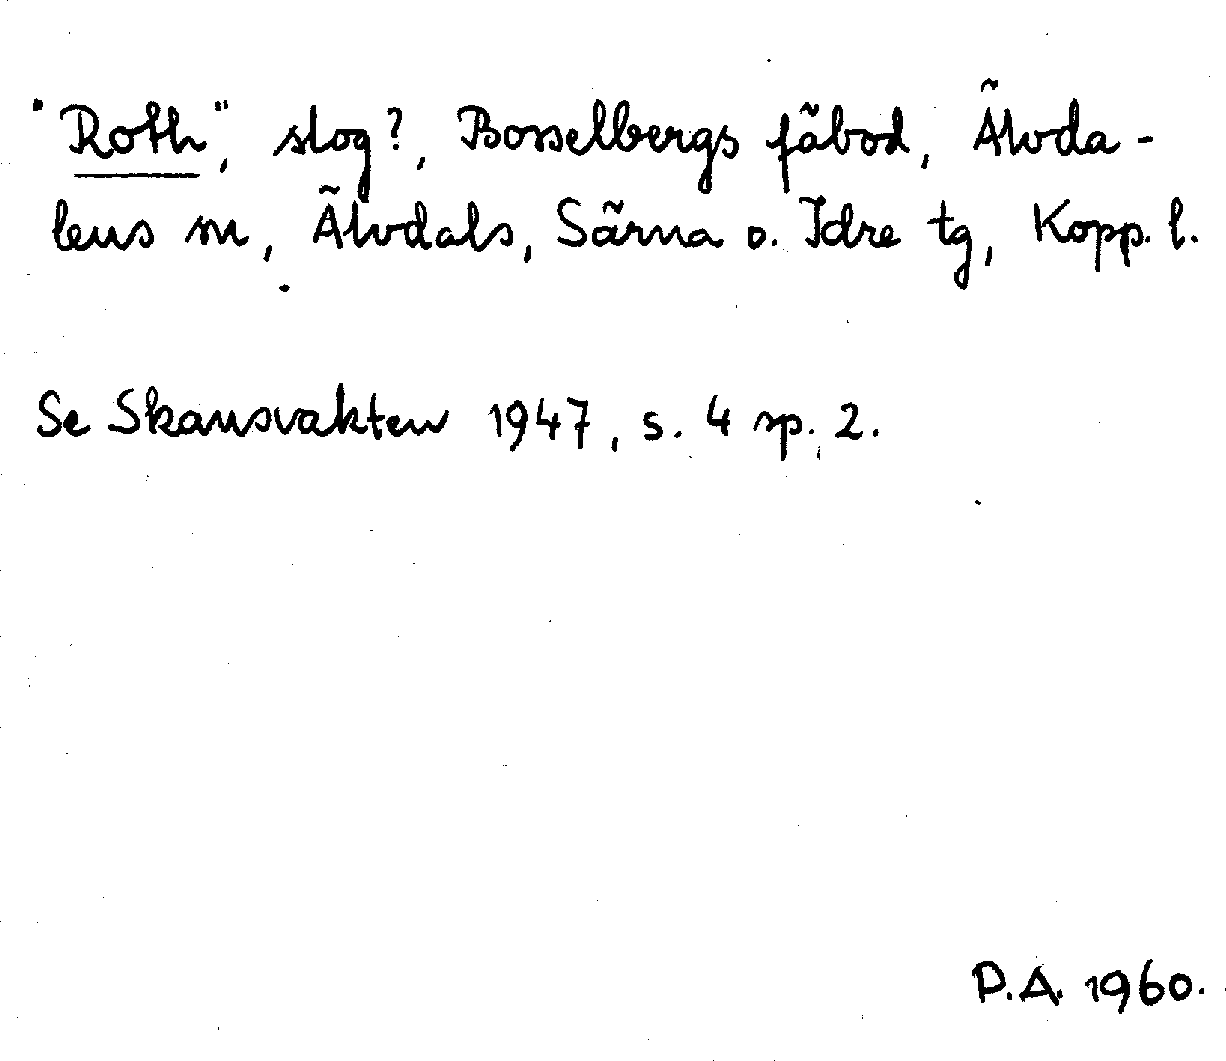 "Roth", slog?, Bosselbergs fäbod, Älvda-
lens sn, Älvdals, Särna o. Idre tg, Kopp. l.
Se Skansvakten 1947, s. 4 sp. 2.
P.A. 1960.